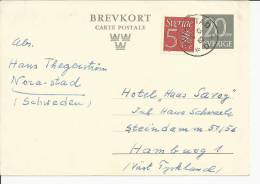 BREVKORT
CARTE POSTALE
Sverige
5
20
SVERIGE
Abs.
Hans Thegerström
Nora-stad
(Schweden)
Hotel „Haus Savoy"
Inh. Hans Schwerla
Steindamm 51/56
Hamburg 1
(Väst Tyskland)